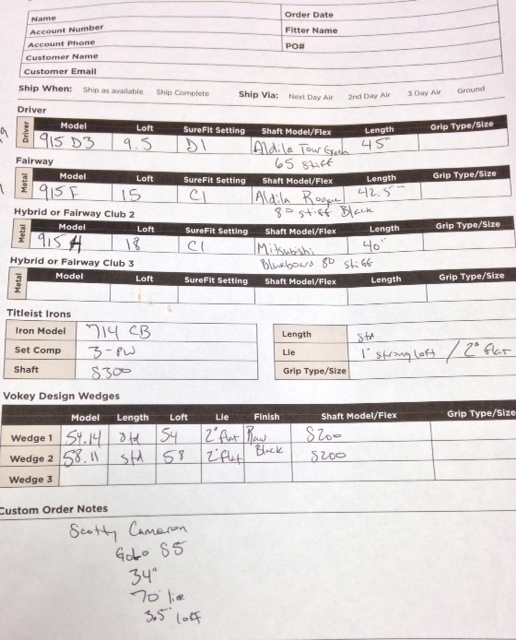 Name Order Date
Account Number Fitter Name
Account Phone PO#
Customer Name
Customer Email
Ship When: Ship as available Ship Complete Ship Via: Next Day Air 2nd Day Air 3 Day Air Ground
Driver
Driver Model Loft SureFit Setting Shaft Model/Flex Length Grip Type/Size
915 D3 9.5 D1 Aldila Tour Green 45"
65 stiff
Fairway
Metal Model Loft SureFit Setting Shaft Model/Flex Length Grip Type/Size
915 F 15 C1 Aldila Rogue 42.5"
80 stiff Black
Hybrid or Fairway Club 2
Metal Model Loft SureFit Setting Shaft Model/Flex Length Grip Type/Size
915 H 18 C1 Mitsubishi 40"
Blueboard 80 stiff
Hybrid or Fairway Club 3
Metal Model Loft SureFit Setting Shaft Model/Flex Length Grip Type/Size
Titleist Irons
Iron Model 714 CB Length std
Set Comp 3-PW Lie 1° strong loft / 2° flat
Shaft S300 Grip Type/Size
Vokey Design Wedges
Model Length Loft Lie Finish Shaft Model/Flex Grip Type/Size
Wedge 1 54.14 std 54 2° flat Raw S200
Wedge 2 58.11 std 58 2° flat Black S200
Wedge 3
Custom Order Notes
Scotty Cameron
GoLo S5
34"
70° lie
3.5° loft